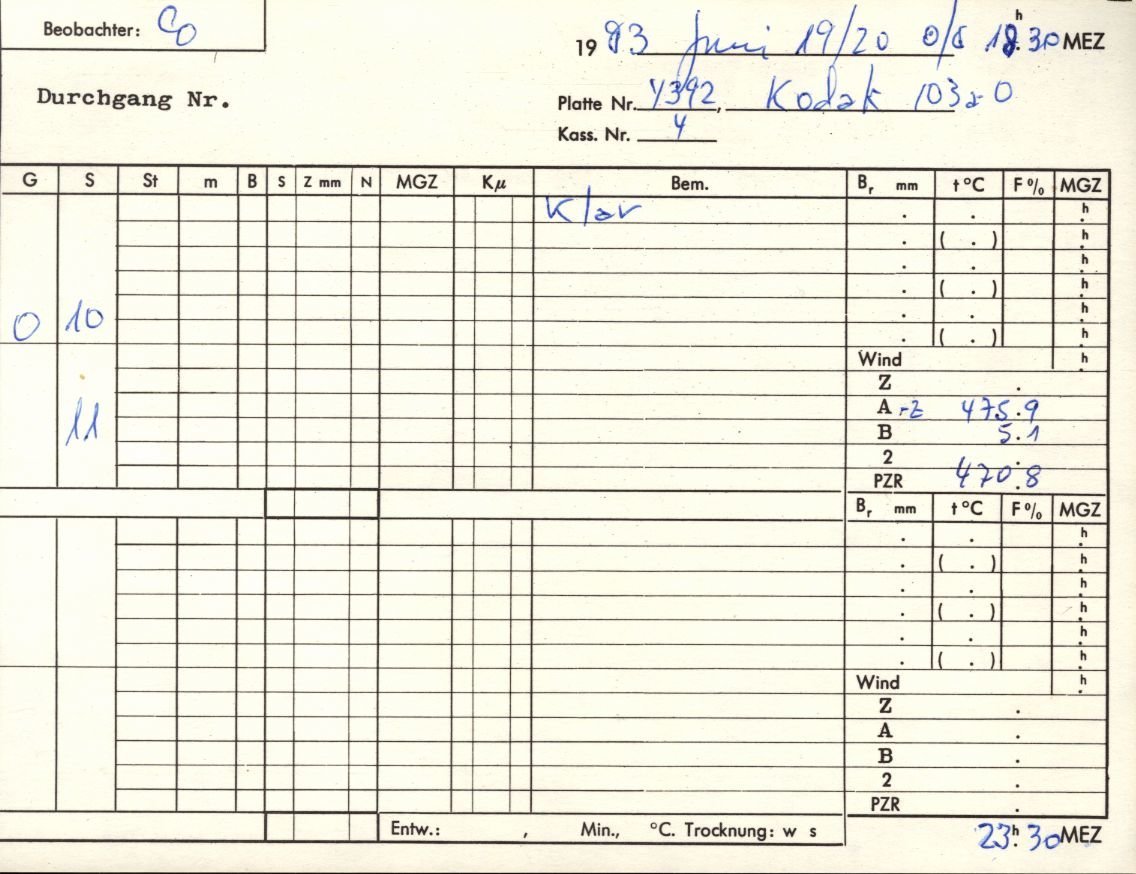 Beobachter: Co
1983 Juni 19/20 0/6 18h 30 MEZ
Durchgang Nr.
Platte Nr. 4392, Kodak 103a0
Kass. Nr. 4
G S St m B S Z mm N MGZ Kμ Bem. Br mm t°C F% MGZ
Klar . . h
. ( . ) h
. . h
. ( . ) h
. . h
0 10 . ( . ) h
Wind h
Z .
11 A -Z 475.9
B 5.1
2 .
PZR 470.8
Br mm t°C F% MGZ
. . h
. ( . ) h
. . h
. ( . ) h
. . h
. ( . ) h
Wind h
Z .
A .
B .
2 .
PZR .
Entw.: , Min., °C. Trocknung: w s
23h 30 MEZ